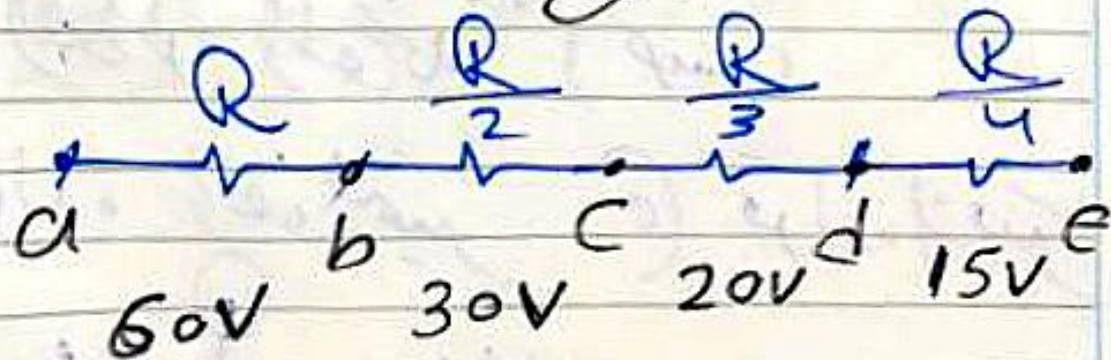 R R/2 R/3 R/4
a b c d e
60V 30V 20V 15V